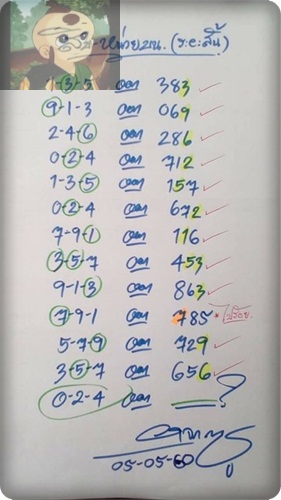 หน่วยบน. (ร. e. สิ้น)
1-3-5 ออก 383
9-1-3 ออก 069
2-4-6 ออก 286
0-2-4 ออก 712
1-3-5 ออก 157
0-2-4 ออก 672
7-9-1 ออก 116
3-5-7 ออก 453
9-1-3 ออก 863
7-9-1 ออก 785 * ร้อย
5-7-9 ออก 729
3-5-7 ออก 656
0-2-4 ออก ?
05-05-60